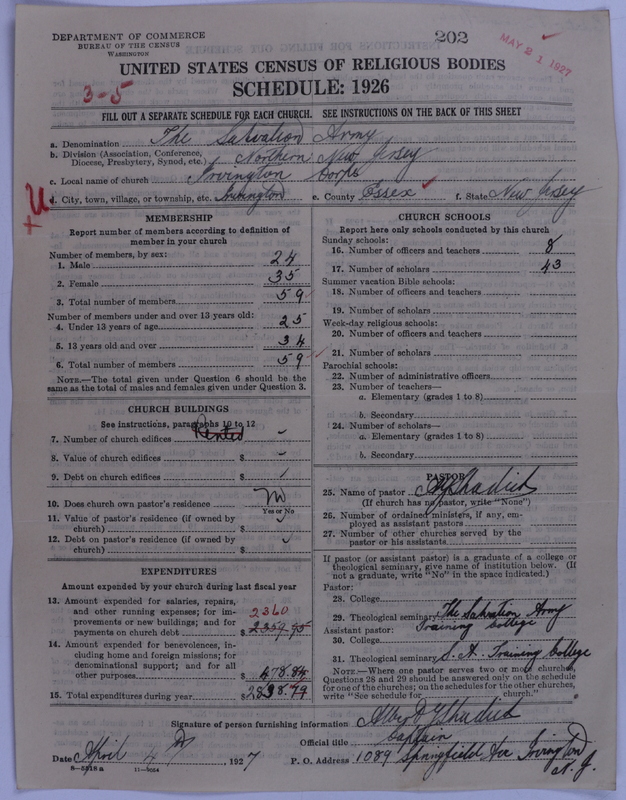 DEPARTMENT OF COMMERCE
BUREAU OF THE CENSUS
WASHINGTON
202
MAY 21 1927
UNITED STATES CENSUS OF RELIGIOUS BODIES
3-5
SCHEDULE: 1926
FILL OUT A SEPARATE SCHEDULE FOR EACH CHURCH. SEE INSTRUCTIONS ON THE BACK OF THIS SHEET
a. Denomination The Salvation Army
b. Division (Association, Conference, Diocese, Presbytery, Synod, etc.) Northern New Jersey
c. Local name of church Irvington Corps
d. City, town, village, or township, etc. Irvington e. County Essex f. State New Jersey
+U
MEMBERSHIP
Report number of members according to definition of member in your church
Number of members, by sex:
1. Male 24
2. Female 35
3. Total number of members 59
Number of members under and over 13 years old:
4. Under 13 years of age 25
5. 13 years old and over 34
6. Total number of members 59
NOTE.—The total given under Question 6 should be the same as the total of males and females given under Question 3.
CHURCH BUILDINGS
See instructions, paragraphs 10 to 12
7. Number of church edifices Rented
8. Value of church edifices $
9. Debt on church edifices $
10. Does church own pastor's residence No
Yes or No
11. Value of pastor's residence (if owned by church) $
12. Debt on pastor's residence (if owned by church) $
EXPENDITURES
Amount expended by your church during last fiscal year
13. Amount expended for salaries, repairs, and other running expenses; for improvements or new buildings; and for payments on church debt $ 2359.95
2360
14. Amount expended for benevolences, including home and foreign missions; for denominational support; and for all other purposes $ 478.84
15. Total expenditures during year $ 2838.79
CHURCH SCHOOLS
Report here only schools conducted by this church
Sunday schools:
16. Number of officers and teachers 8
17. Number of scholars 43
Summer vacation Bible schools:
18. Number of officers and teachers
19. Number of scholars
Week-day religious schools:
20. Number of officers and teachers
21. Number of scholars
Parochial schools:
22. Number of administrative officers
23. Number of teachers—
a. Elementary (grades 1 to 8)
b. Secondary
24. Number of scholars—
a. Elementary (grades 1 to 8)
b. Secondary
PASTOR
25. Name of pastor
(If church has no pastor, write "None")
26. Number of ordained ministers, if any, employed as assistant pastors
27. Number of other churches served by the pastor or his assistants
If pastor (or assistant pastor) is a graduate of a college or theological seminary, give name of institution below. (If not a graduate, write "No" in the space indicated.)
Pastor:
28. College
29. Theological seminary The Salvation Army Training College
Assistant pastor:
30. College
31. Theological seminary S.A. Training College
NOTE.—Where one pastor serves two or more churches, Questions 28 and 29 should be answered only on the schedule for one of the churches; on the schedules for the other churches, write "See schedule for church."
Signature of person furnishing information
Official title Captain
Date April 4 1927 P. O. Address 1089 Springfield Ave Irvington N. J.
8-5518a 11-9064